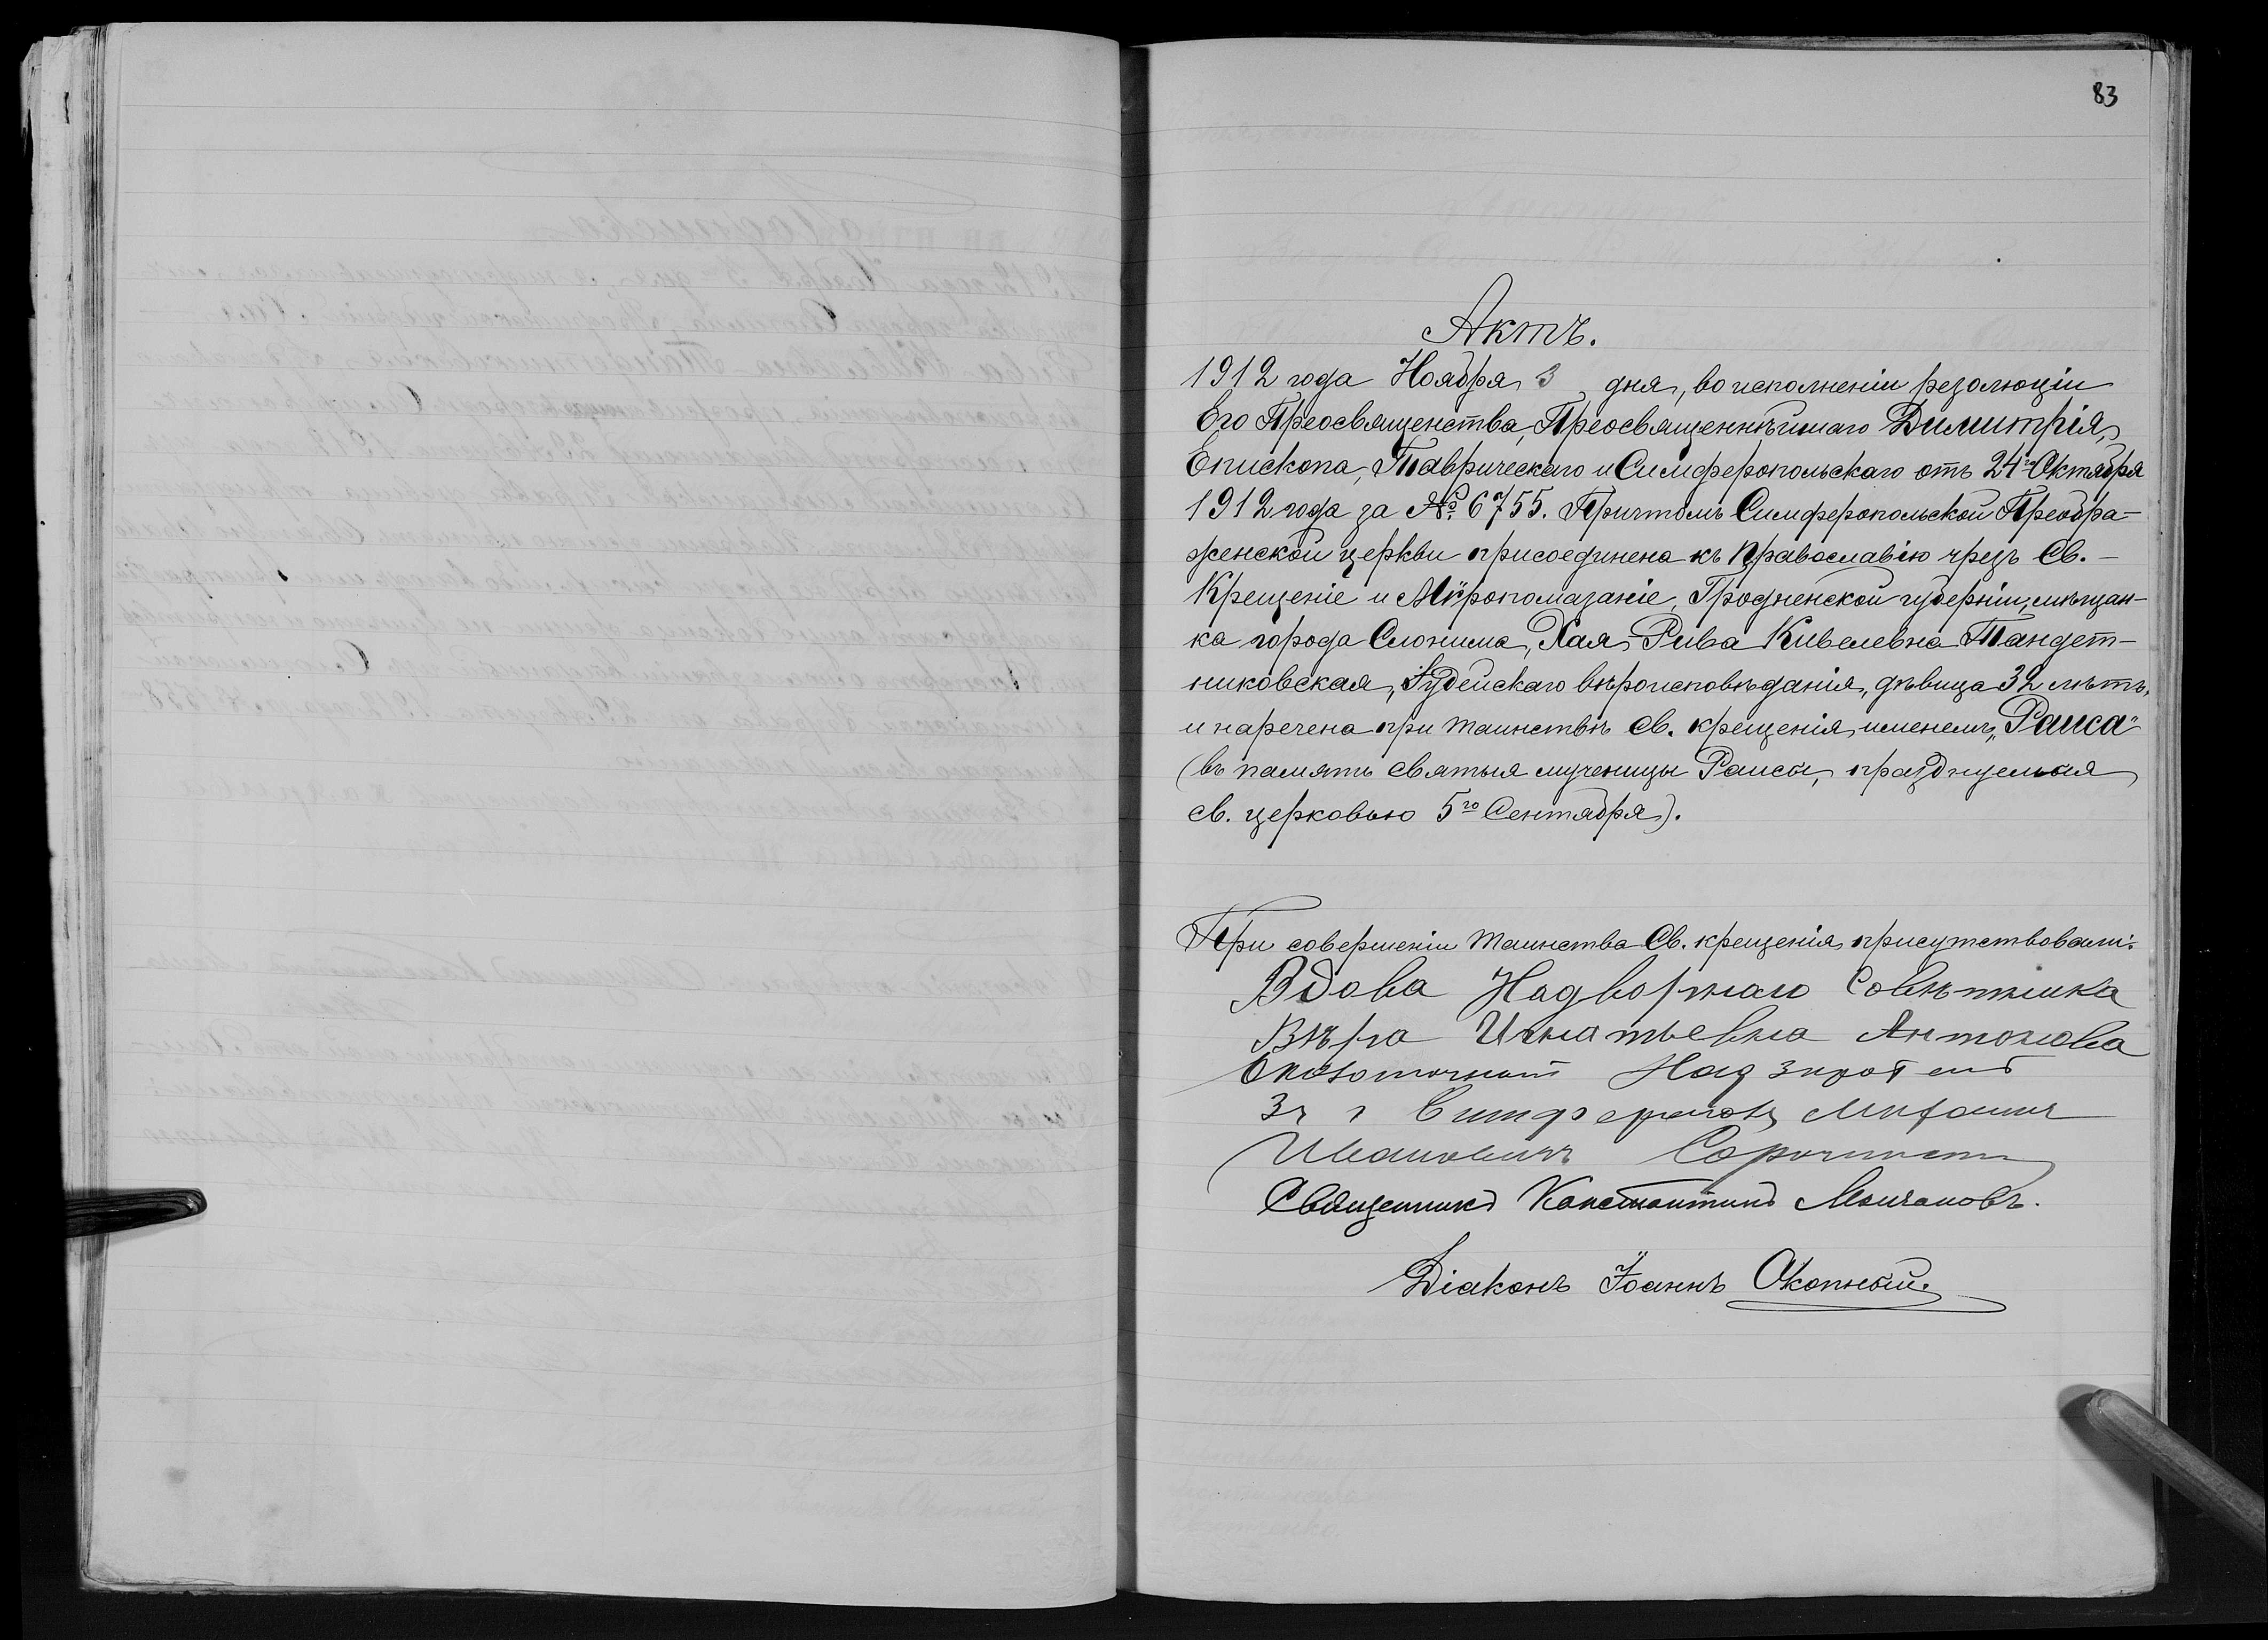 83
Актъ.
1912 года Ноября 3 дня, во исполненіи резолюціи
Его Преосвященства, Преосвященнѣйшаго Димитрія,
Епископа, Таврическаго и Симферопольскаго отъ 24го Октября
1912 года за № 6755. Причтомъ Симферопольской Преобра-
женской церкви присоединена къ Православію чрезъ Св. -
Крещеніе и Мѵропомазаніе, Гродненской губерніи, мѣщан-
ка города Слонима, Хая-Рива Кивелевна Тандет-
никовская, Іудейскаго вѣроисповѣданія, дѣвица 32 лѣтъ,
и наречена при таинствѣ св. крещенія именемъ „Раиса"
(въ память святыя мученицы Раисы, празднуемая
св. церковью 5го Сентября).
При совершеніи таинства Св. крещенія присутствовали:
Вдова Надворнаго Совѣтника
Вѣра Игнатьевна Антонова
Околоточный Надзиратель
3ч г Симферополь
Ивановичъ
Священникъ Константинъ Молчановъ.
Діаконъ Іоаннъ Окопный.